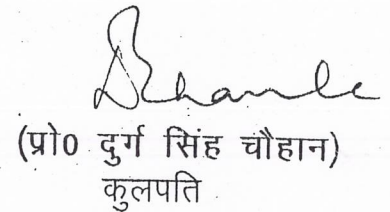 (प्रो0 दुर्ग सिंह चौहान)
कुलपति